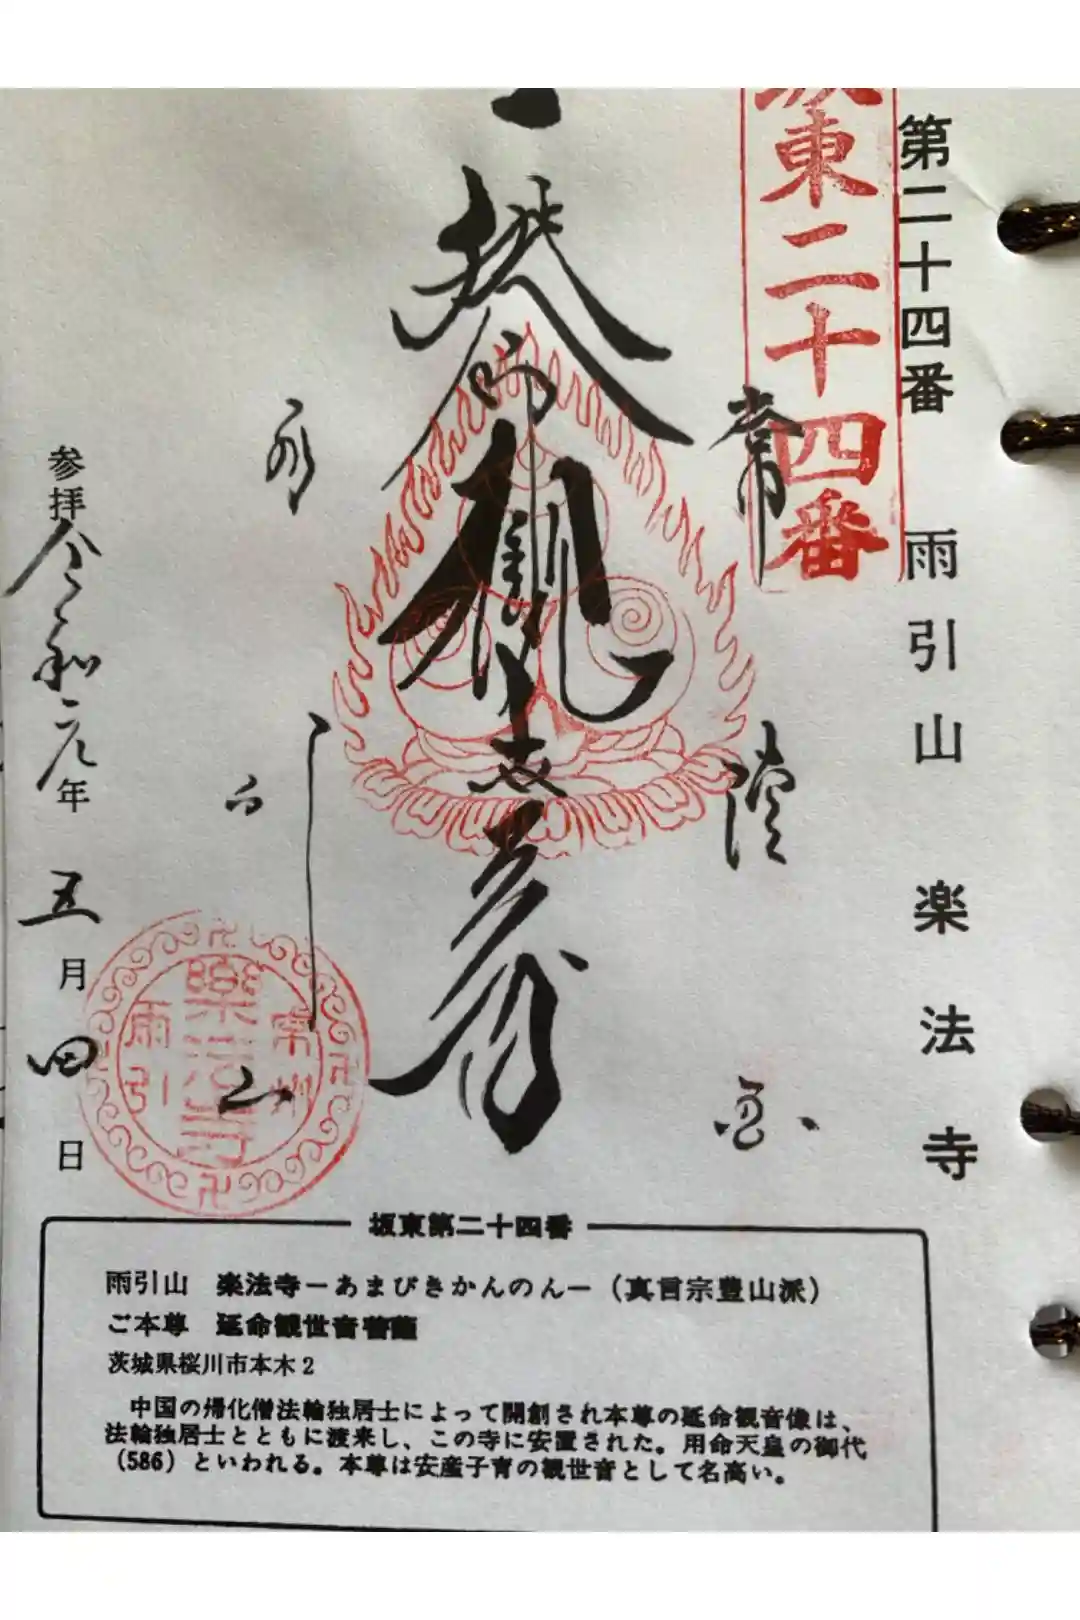 第二十四番 雨引山 楽法寺
坂東二十四番
常陸国
雨引山
参拝令和元年五月四日
常州
楽法寺
雨引
坂東第二十四番
雨引山 楽法寺－あまびきかんのん－（真言宗豊山派）
ご本尊 延命観世音菩薩
茨城県桜川市本木2
中国の帰化僧法輪独居士によって開創され本尊の延命観音像は、
法輪独居士とともに渡来し、この寺に安置された。用命天皇の御代
（586）といわれる。本尊は安産子育の観世音として名高い。